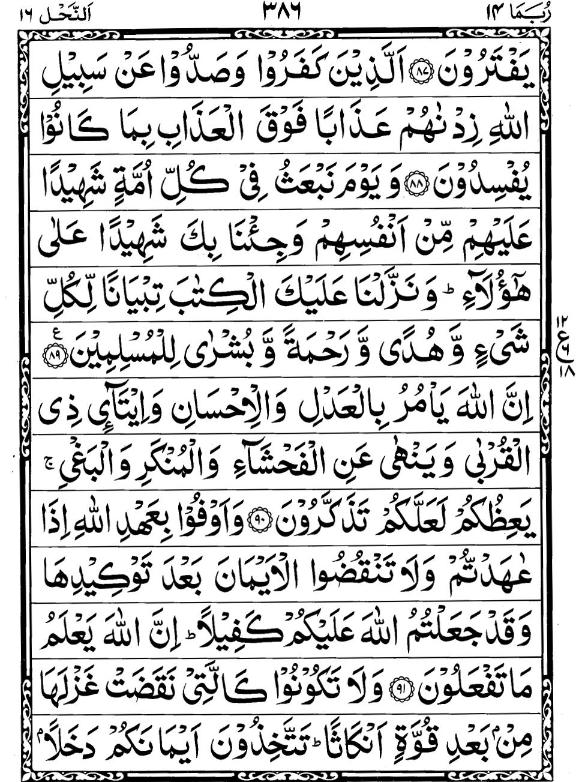 رُبَمَا ١٤ ٣٨٦ اَلنَّحْل ١٦
يَفْتَرُوْنَ ﴿٨٧﴾ اَلَّذِيْنَ كَفَرُوْا وَصَدُّوْا عَنْ سَبِيْلِ
اللهِ زِدْنٰهُمْ عَذَابًا فَوْقَ الْعَذَابِ بِمَا كَانُوْا
يُفْسِدُوْنَ ﴿٨٨﴾ وَيَوْمَ نَبْعَثُ فِيْ كُلِّ اُمَّةٍ شَهِيْدًا
عَلَيْهِمْ مِّنْ اَنْفُسِهِمْ وَجِئْنَا بِكَ شَهِيْدًا عَلٰى
هٰٓؤُلَآءِ ؕ وَنَزَّلْنَا عَلَيْكَ الْكِتٰبَ تِبْيَانًا لِّكُلِّ
شَيْءٍ وَّهُدًى وَّرَحْمَةً وَّبُشْرٰى لِلْمُسْلِمِيْنَ ﴿٨٩﴾ ع
١٢ ع ٦ ١٨
اِنَّ اللهَ يَاْمُرُ بِالْعَدْلِ وَالْاِحْسَانِ وَاِيْتَآئِ ذِي
الْقُرْبٰى وَيَنْهٰى عَنِ الْفَحْشَآءِ وَالْمُنْكَرِ وَالْبَغْيِ ۚ
يَعِظُكُمْ لَعَلَّكُمْ تَذَكَّرُوْنَ ﴿٩٠﴾ وَاَوْفُوْا بِعَهْدِ اللهِ اِذَا
عٰهَدْتُّمْ وَلَا تَنْقُضُوا الْاَيْمَانَ بَعْدَ تَوْكِيْدِهَا
وَقَدْ جَعَلْتُمُ اللهَ عَلَيْكُمْ كَفِيْلًا ؕ اِنَّ اللهَ يَعْلَمُ
مَا تَفْعَلُوْنَ ﴿٩١﴾ وَلَا تَكُوْنُوْا كَالَّتِيْ نَقَضَتْ غَزْلَهَا
مِنْۢ بَعْدِ قُوَّةٍ اَنْكَاثًا ؕ تَتَّخِذُوْنَ اَيْمَانَكُمْ دَخَلًاۢ